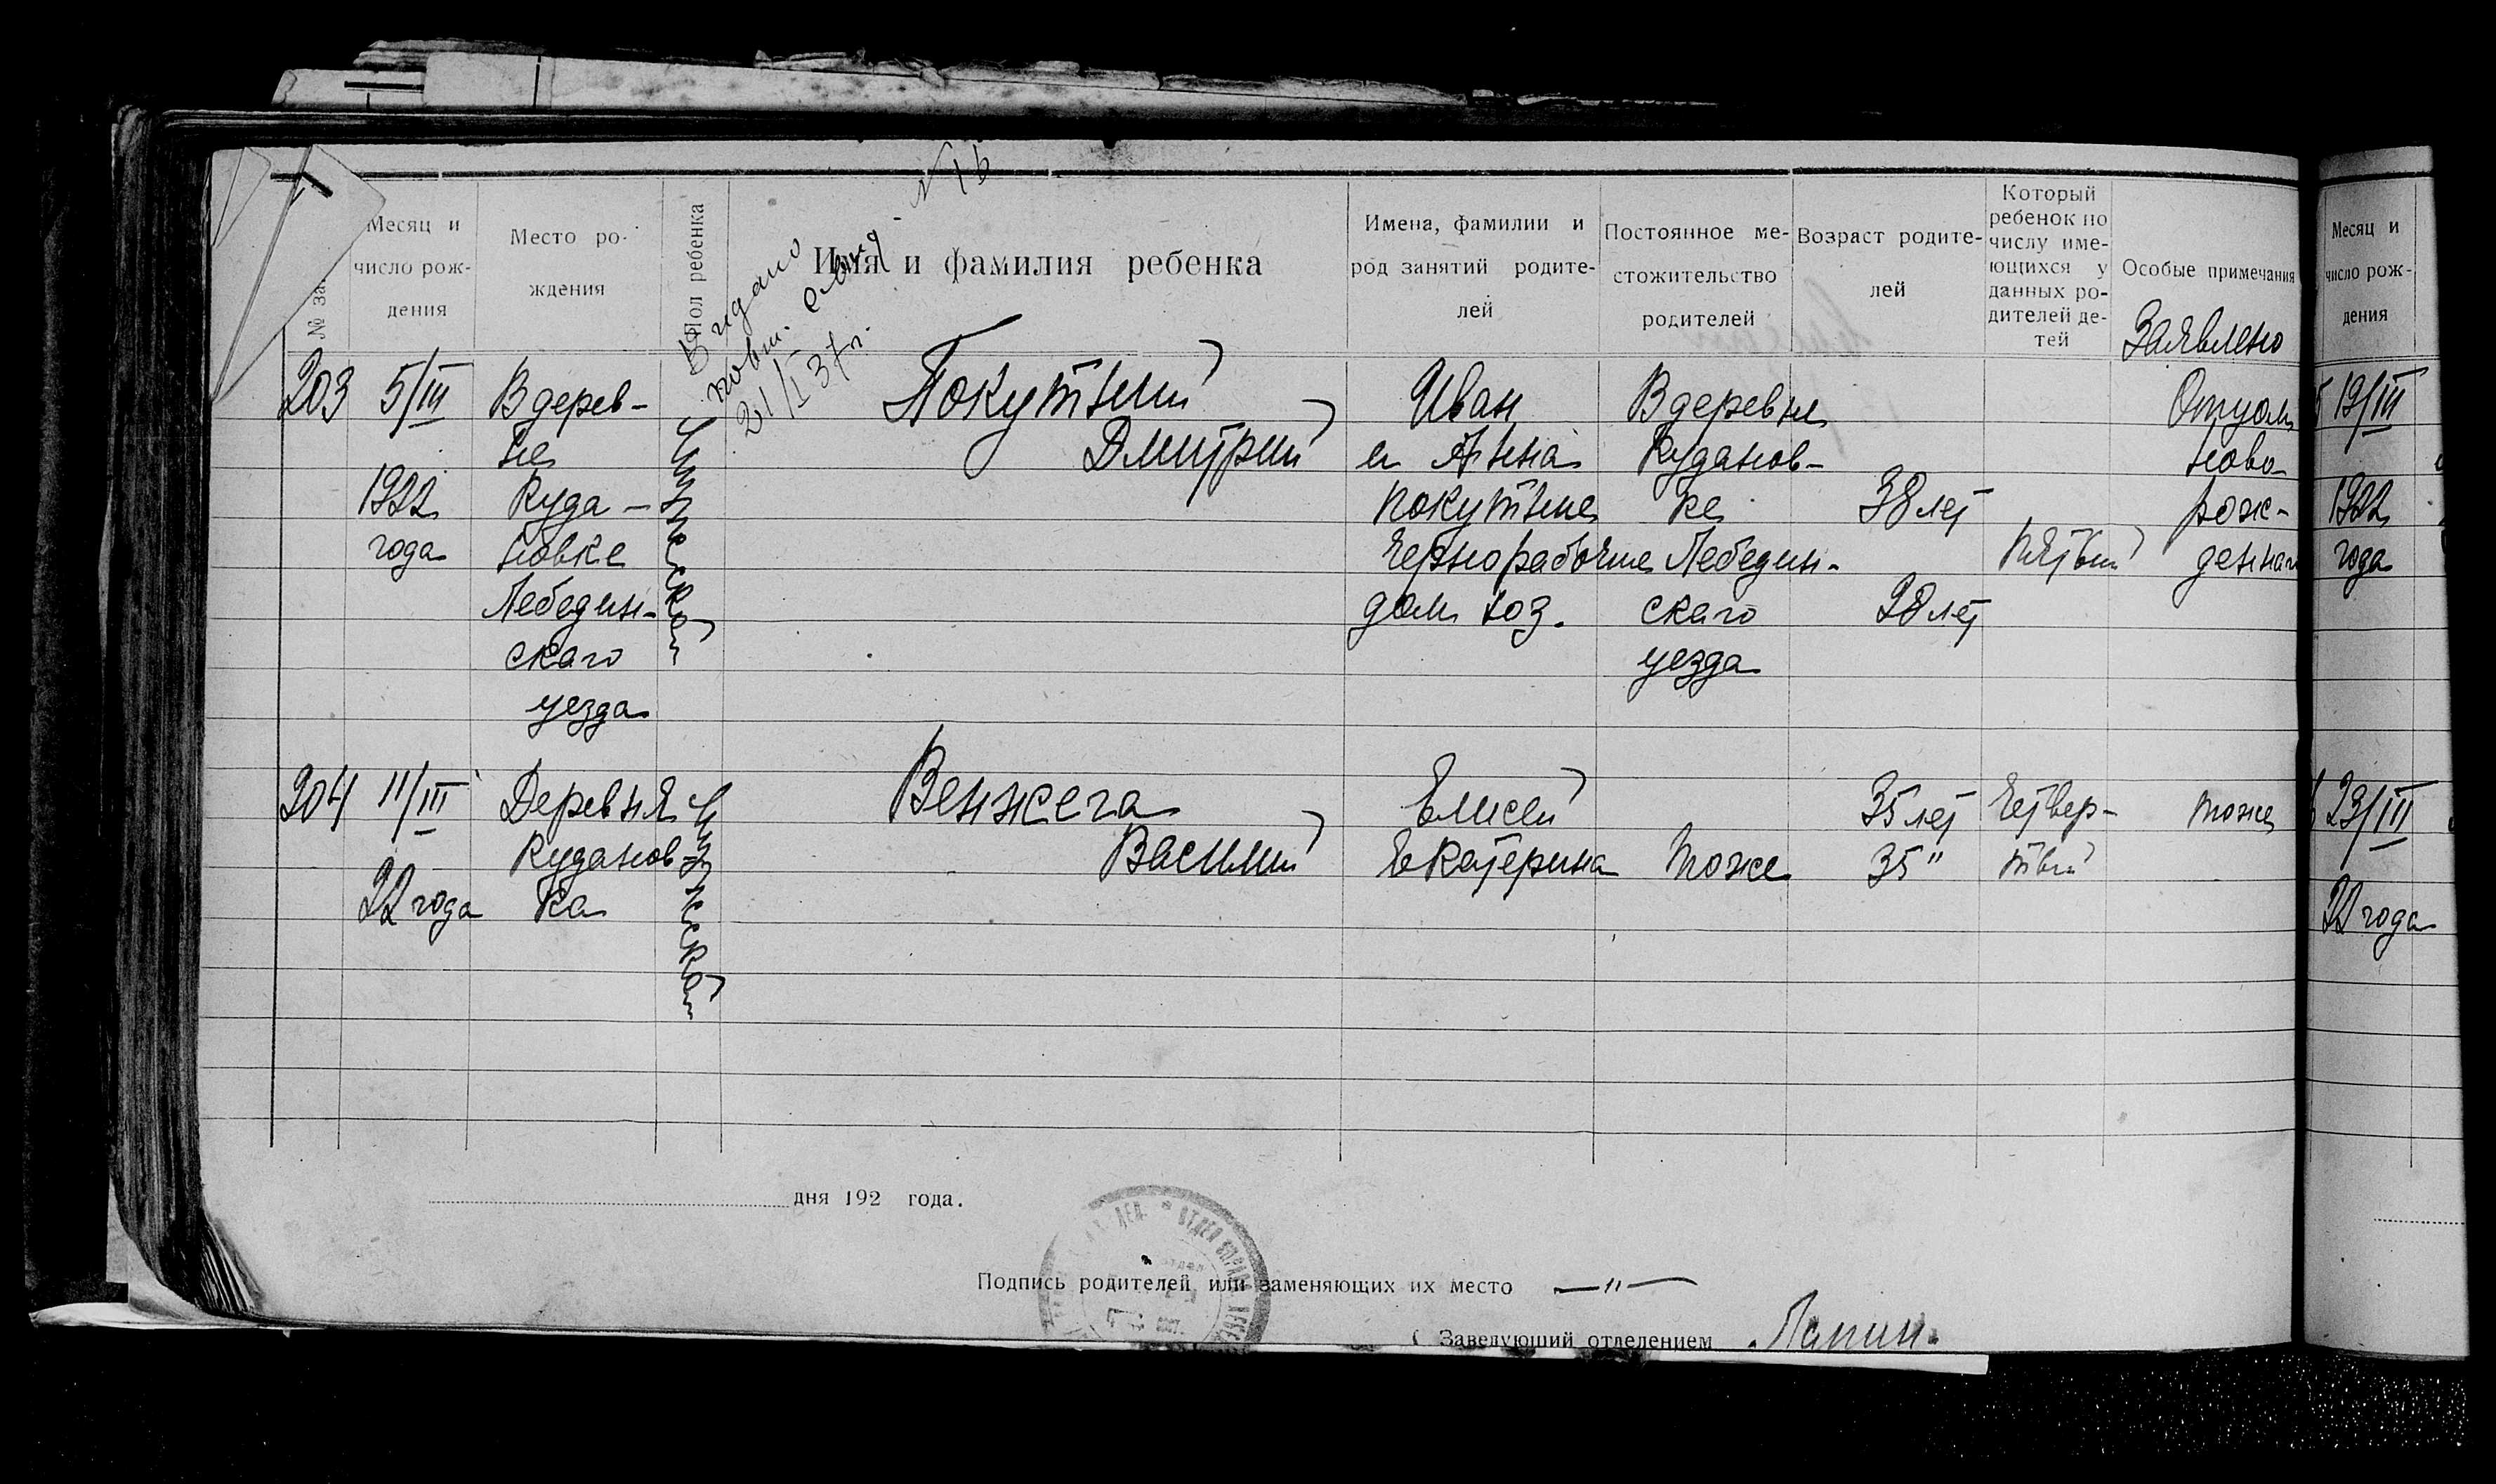 № 16
Выдано
новы. свид
21/I 37 г.
№ за
Месяц и
число рож-
дения
Место ро-
ждения
Пол ребенка
Имя и фамилия ребенка
Имена, фамилии и
род занятий родите-
лей
Постоянное ме-
стожительство
родителей
Возраст родите-
лей
Который
ребенок по
числу име-
ющихся у
данных ро-
дителей де-
тей
Особые примечания
Заявлено
203
5/III
1922
года
В дерев-
не
Куда-
новке
Лебедин-
скаго
уезда
Мужеской
Покутний
Дмитрий
Иван
и Анна
Покутние
Чернорабочие
дом хоз.
В деревне
Куданов-
ке
Лебедин-
скаго
уезда
38 лет
28 лет
Пятый
Отцом
ново-
рож-
деннаго
204
11/III
22 года
Деревня
Куданов-
ка
Мужеской
Венжега
Василий
Елисей
Екатерина
тоже
35 лет
35 "
Четвер-
тый
тоже
дня 192 года.
Подпись родителей или заменяющих их место — " —
Заведующий отделением Лапин.
Месяц и
число рож-
дения
19/III
1922
года
23/III
22 года